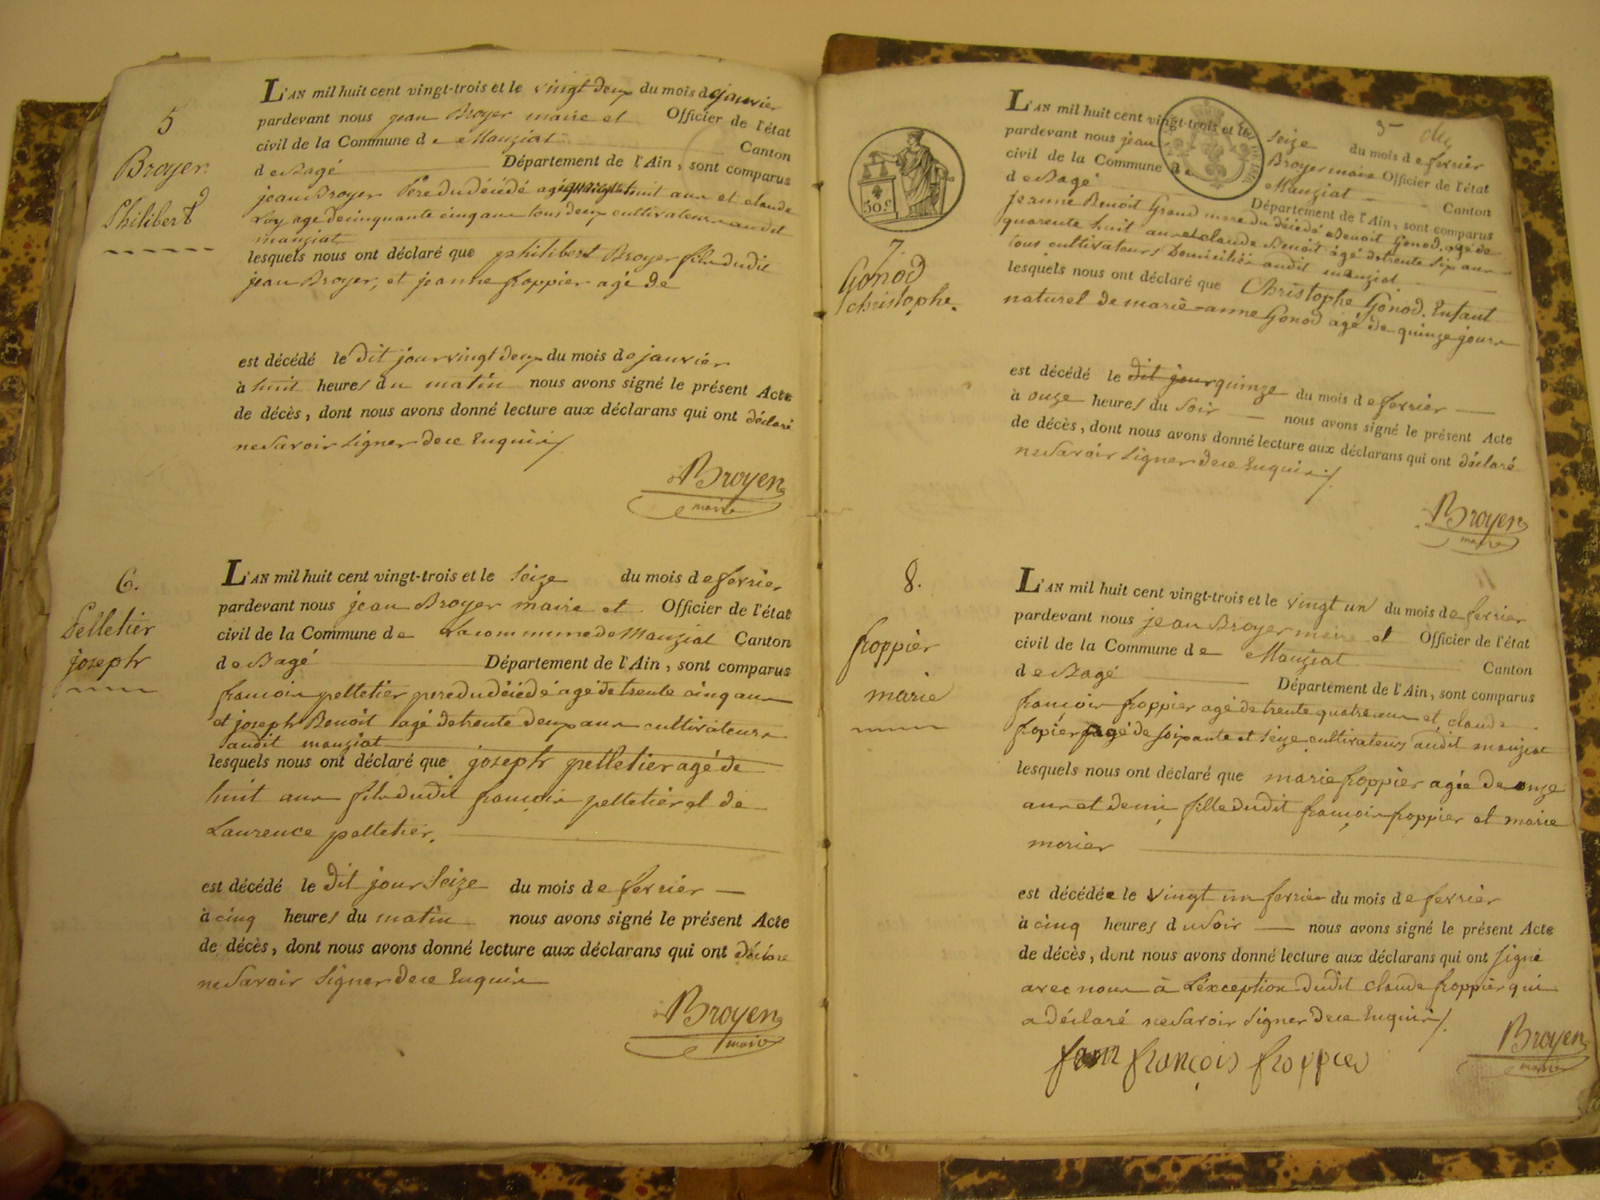 5
Broyer
Philibert
L'AN mil huit cent vingt-trois et le vingt deux du mois de janvier
pardevant nous jean Broyer maire et Officier de l'état
civil de la Commune de Manziat Canton
de Bagé Département de l'Ain, sont comparus
jean Broyer Pere du décédé agé huit ans et claude
agé de cinquante cinq ans tous deux cultivateurs audit
manziat
lesquels nous ont déclaré que philibert Broyer fils dudit
jean Broyer, et jeanne froppier agé de
est décédé le dit jour vingt deux du mois de janvier
à huit heures du matin nous avons signé le présent Acte
de décès, dont nous avons donné lecture aux déclarans qui ont déclaré
ne Savoir Signer de ce Enquis
Broyer
maire
6.
Pelletier
joseph
L'AN mil huit cent vingt-trois et le Seize du mois de fevrier
pardevant nous jean Broyer maire et Officier de l'état
civil de la Commune de La commune de Manziat Canton
de Bagé Département de l'Ain, sont comparus
francois pelletier pere du décédé agé de trente cinq ans
et joseph Benoit agé de trente deux ans cultivateurs
audit manziat
lesquels nous ont déclaré que joseph pelletier agé de
huit ans fils dudit francois pelletier et de
Laurence pelletier.
est décédé le dit jour Seize du mois de fevrier
à cinq heures du matin nous avons signé le présent Acte
de décès, dont nous avons donné lecture aux déclarans qui ont déclaré
ne Savoir Signer de ce Enquis
Broyer
maire
50 c
7
Gonod
christophe.
L'AN mil huit cent vingt-trois et le Seize du mois de fevrier
pardevant nous jean Broyer maire Officier de l'état
civil de la Commune de Manziat Canton
de Bagé Département de l'Ain, sont comparus
jeanne Benoit Grand mere du décédé Benoit Gonod, agé de
quarente huit ans et claude Benoit agé de trente Six ans
tous cultivateurs Domiciliés audit manziat
lesquels nous ont déclaré que Christophe Gonod. Enfant
naturel de marie-anne Gonod agé de quinze jours
est décédé le dit jour quinze du mois de fevrier
à onze heures du Soir nous avons signé le présent Acte
de décès, dont nous avons donné lecture aux déclarans qui ont déclaré
ne Savoir Signer de ce Enquis
Broyer
maire
8.
froppier
marie
L'AN mil huit cent vingt-trois et le vingt un du mois de fevrier
pardevant nous jean Broyer maire et Officier de l'état
civil de la Commune de Manziat Canton
de Bagé Département de l'Ain, sont comparus
francois froppier agé de trente quatre ans et claude
fropier agé de Soixante et Seize cultivateurs audit manziat
lesquels nous ont déclaré que marie froppier agée de onze
ans et demi fille dudit francois froppier et marie
morier
est décédée le vingt un fevrier du mois de fevrier
à cinq heures du Soir nous avons signé le présent Acte
de décès, dont nous avons donné lecture aux déclarans qui ont Signé
avec nous à L'exception dudit claude froppier qui
a déclaré ne Savoir Signer de ce Enquis
Broyer
maire
françois froppier